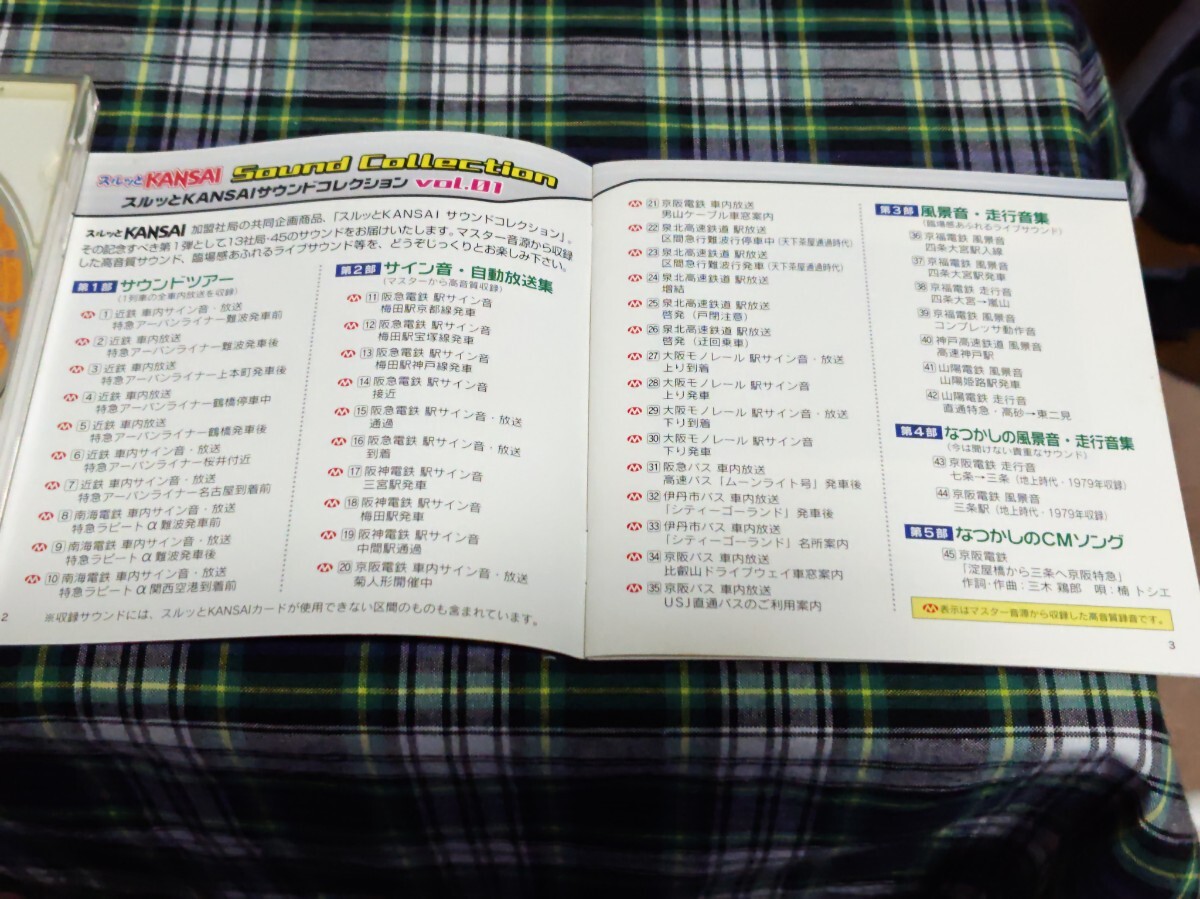 スルッとKANSAI Sound Collection
スルッとKANSAIサウンドコレクション vol.01
スルッとKANSAI 加盟社局の共同企画商品、「スルッとKANSAI サウンドコレクション」。
その記念すべき第1弾として13社局・45のサウンドをお届けいたします。マスター音源から収録
した高音質サウンド、臨場感あふれるライブサウンド等を、どうぞじっくりとお楽しみ下さい。
第1部 サウンドツアー
(1列車の全車内放送を収録)
1 近鉄 車内サイン音・放送
特急アーバンライナー難波発車前
2 近鉄 車内放送
特急アーバンライナー難波発車後
3 近鉄 車内放送
特急アーバンライナー上本町発車後
4 近鉄 車内放送
特急アーバンライナー鶴橋停車中
5 近鉄 車内放送
特急アーバンライナー鶴橋発車後
6 近鉄 車内サイン音・放送
特急アーバンライナー桜井付近
7 近鉄 車内サイン音・放送
特急アーバンライナー名古屋到着前
8 南海電鉄 車内サイン音・放送
特急ラピートα難波発車前
9 南海電鉄 車内サイン音・放送
特急ラピートα難波発車後
10 南海電鉄 車内サイン音・放送
特急ラピートα関西空港到着前
第2部 サイン音・自動放送集
(マスターから高音質収録)
11 阪急電鉄 駅サイン音
梅田駅京都線発車
12 阪急電鉄 駅サイン音
梅田駅宝塚線発車
13 阪急電鉄 駅サイン音
梅田駅神戸線発車
14 阪急電鉄 駅サイン音
接近
15 阪急電鉄 駅サイン音・放送
通過
16 阪急電鉄 駅サイン音・放送
到着
17 阪神電鉄 駅サイン音
三宮駅発車
18 阪神電鉄 駅サイン音
梅田駅発車
19 阪神電鉄 駅サイン音
中間駅通過
20 京阪電鉄 車内サイン音・放送
菊人形開催中
※収録サウンドには、スルッとKANSAIカードが使用できない区間のものも含まれています。
2
21 京阪電鉄 車内放送
男山ケーブル車窓案内
22 泉北高速鉄道 駅放送
区間急行難波行停車中(天下茶屋通過時代)
23 泉北高速鉄道 駅放送
区間急行難波行発車(天下茶屋通過時代)
24 泉北高速鉄道 駅放送
増結
25 泉北高速鉄道 駅放送
啓発(戸閉注意)
26 泉北高速鉄道 駅放送
啓発(迂回乗車)
27 大阪モノレール 駅サイン音・放送
上り到着
28 大阪モノレール 駅サイン音
上り発車
29 大阪モノレール 駅サイン音・放送
下り到着
30 大阪モノレール 駅サイン音
下り発車
31 阪急バス 車内放送
高速バス「ムーンライト号」発車後
32 伊丹市バス 車内放送
「シティーゴーランド」発車後
33 伊丹市バス 車内放送
「シティーゴーランド」名所案内
34 京阪バス 車内放送
比叡山ドライブウェイ車窓案内
35 京阪バス 車内放送
USJ直通バスのご利用案内
第3部 風景音・走行音集
(臨場感あふれるライブサウンド)
36 京福電鉄 風景音
四条大宮駅入線
37 京福電鉄 風景音
四条大宮駅発車
38 京福電鉄 走行音
四条大宮→嵐山
39 京福電鉄 風景音
コンプレッサ動作音
40 神戸高速鉄道 風景音
高速神戸駅
41 山陽電鉄 風景音
山陽姫路駅発車
42 山陽電鉄 走行音
直通特急・高砂→東二見
第4部 なつかしの風景音・走行音集
(今は聞けない貴重なサウンド)
43 京阪電鉄 走行音
七条→三条(地上時代・1979年収録)
44 京阪電鉄 風景音
三条駅(地上時代・1979年収録)
第5部 なつかしのCMソング
45 京阪電鉄
「淀屋橋から三条へ京阪特急」
作詞・作曲:三木 鶏郎 唄:楠 トシエ
M表示はマスター音源から収録した高音質録音です。
3